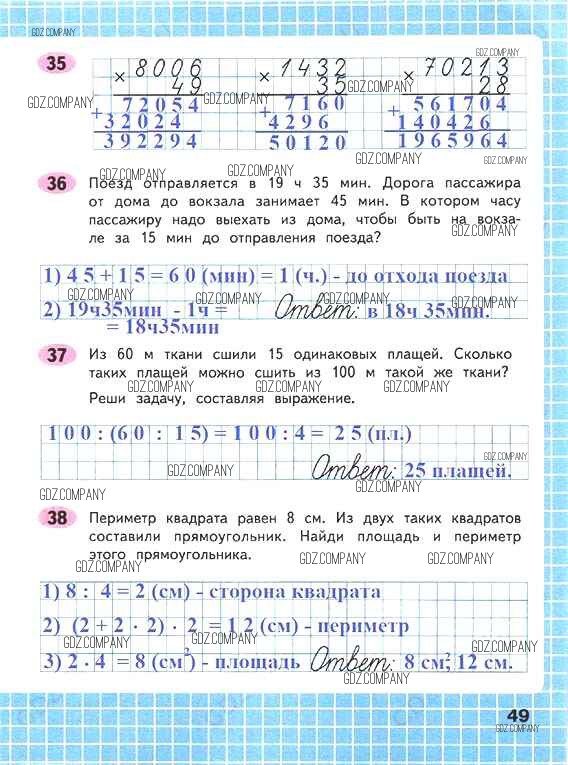 GDZ.COMPANY
35
× 8006
49
72054
+ 32024
392294
× 1432
35
7160
+ 4296
50120
× 70213
28
561704
+ 140426
1965964
GDZ.COMPANY
GDZ.COMPANY GDZ.COMPANY GDZ.COMPANY
GDZ.COMPANY GDZ.COMPANY GDZ.COMPANY
36 Поезд отправляется в 19 ч 35 мин. Дорога пассажира
от дома до вокзала занимает 45 мин. В котором часу
пассажиру надо выехать из дома, чтобы быть на вокза-
ле за 15 мин до отправления поезда?
GDZ.COMPANY
1) 45+15=60 (мин) = 1 (ч.) - до отхода поезда
GDZ.COMPANY GDZ.COMPANY GDZ.COMPANY GDZ.COMPANY
2) 19ч35мин - 1ч = Ответ: в 18ч 35мин.
= 18ч35мин
37 Из 60 м ткани сшили 15 одинаковых плащей. Сколько
таких плащей можно сшить из 100 м такой же ткани?
GDZ.COMPANY GDZ.COMPANY GDZ.COMPANY
Реши задачу, составляя выражение.
100:(60 : 15)=100:4= 25 (пл.)
GDZ.COMPANY Ответ: 25 плащей.
GDZ.COMPANY GDZ.COMPANY
38 Периметр квадрата равен 8 см. Из двух таких квадратов
составили прямоугольник. Найди площадь и периметр
этого прямоугольника.
GDZ.COMPANY GDZ.COMPANY GDZ.COMPANY
1) 8 : 4=2 (см) - сторона квадрата
2) (2+2 · 2) · 2 =12 (см) - периметр
GDZ.COMPANY GDZ.COMPANY GDZ.COMPANY
3) 2 · 4 = 8 (см²) - площадь Ответ: 8 см², 12 см.
GDZ.COMPANY
49
GDZ.COMPANY